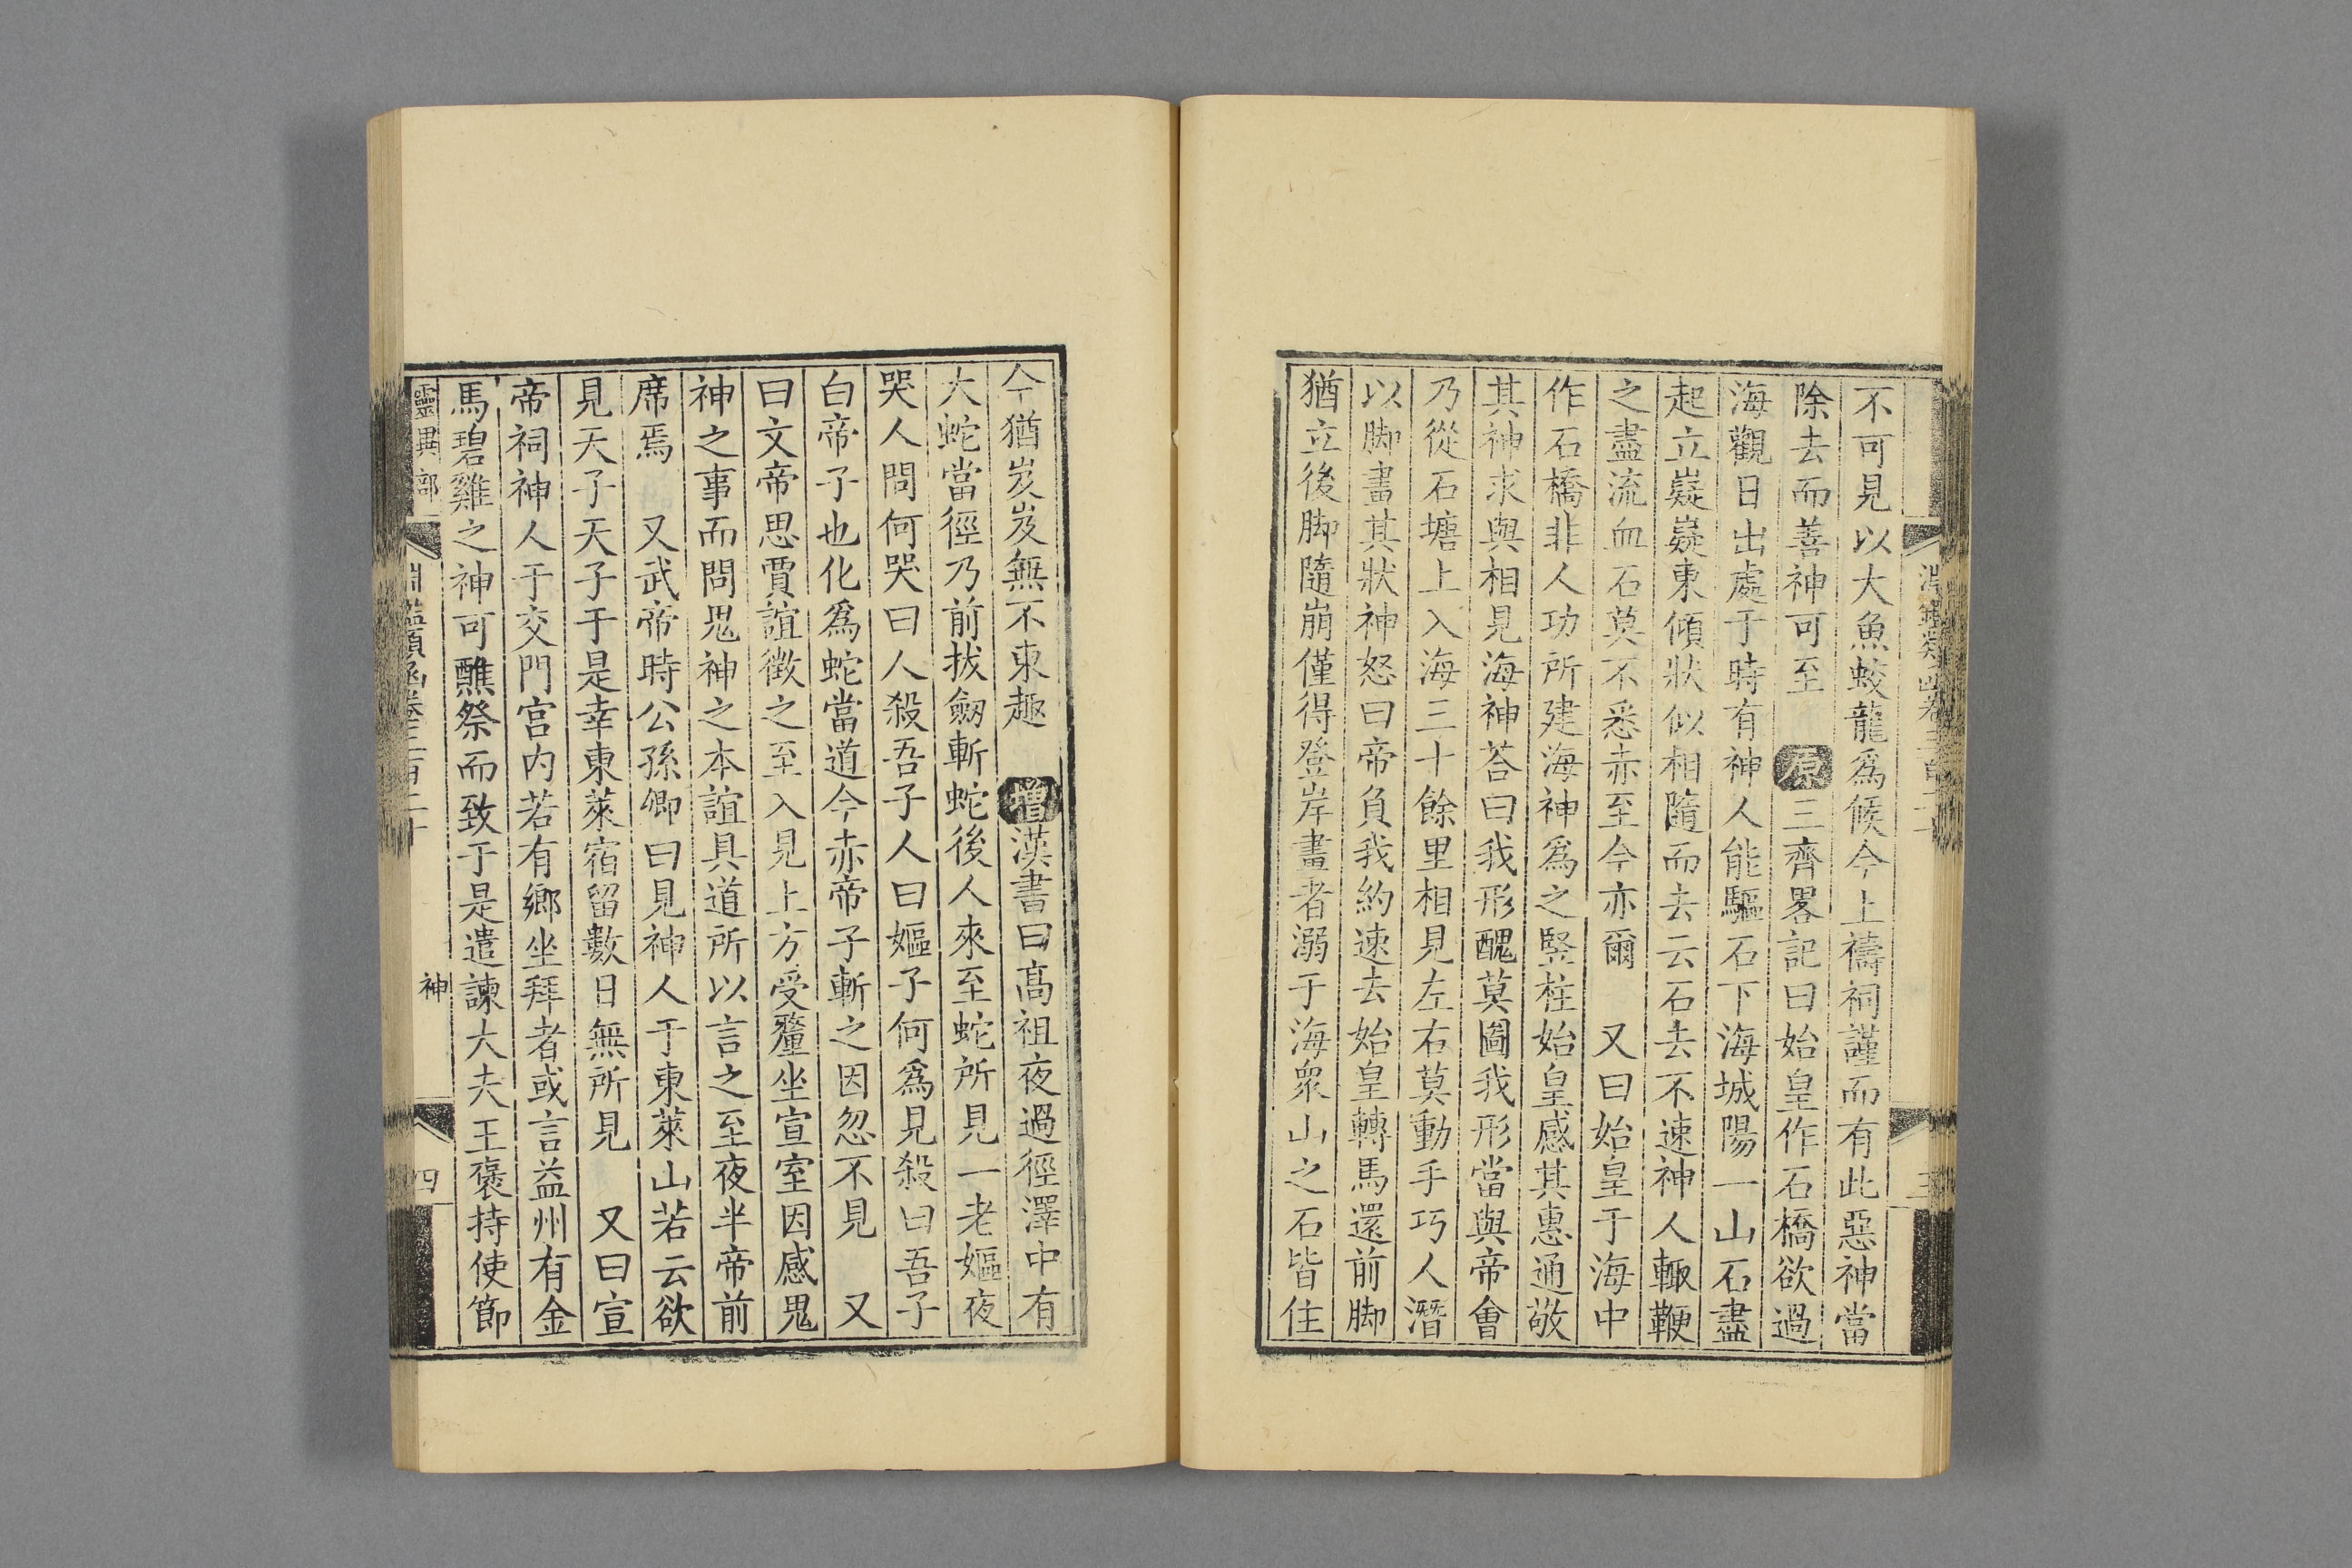 不可見以大魚蛟龍爲候今上禱祠謹而有此惡神當
除去而善神可至　原三齊畧記曰始皇作石橋欲過
海觀日出處于時有神人能驅石下海城陽一山石盡
起立嶷嶷東傾狀似相隨而去云石去不速神人輙鞭
之盡流血石莫不悉赤至今亦爾　又曰始皇于海中
作石橋非人功所建海神爲之竪柱始皇感其惠通敬
其神求與相見海神荅曰我形醜莫圖我形當與帝會
乃從石塘上入海三十餘里相見左右莫動手巧人潛
以脚畫其狀神怒曰帝負我約速去始皇轉馬還前脚
猶立後脚隨崩僅得登岸畫者溺于海衆山之石皆住
今猶岌岌無不東趣　增漢書曰髙祖夜過徑澤中有
大蛇當徑乃前拔劔斬蛇後人來至蛇所見一老嫗夜
哭人問何哭曰人殺吾子人曰嫗子何爲見殺曰吾子
白帝子也化爲蛇當道今赤帝子斬之因忽不見　又
曰文帝思賈誼徵之至入見上方受釐坐宣室因感鬼
神之事而問鬼神之本誼具道所以言之至夜半帝前
席焉　又武帝時公孫卿曰見神人于東萊山若云欲
見天子天子于是幸東萊宿留數日無所見　又曰宣
帝祠神人于交門宮内若有鄉坐拜者或言益州有金
馬碧雞之神可醮祭而致于是遣諫大夫王褒持使節
靈異部一
淵鑑類函卷三百二十
神
四